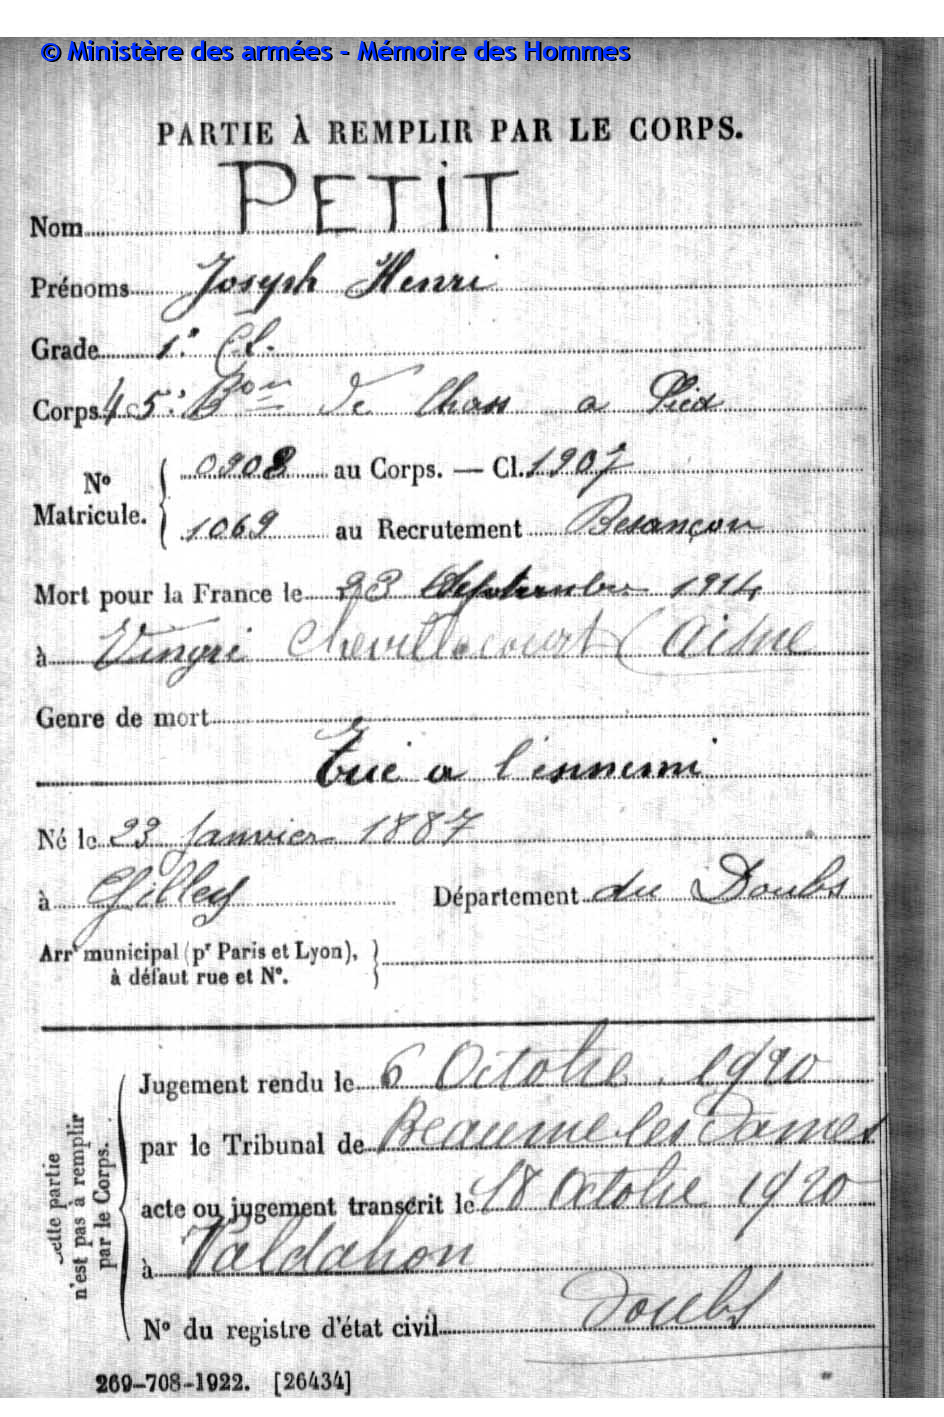 © Ministère des armées - Mémoire des Hommes
PARTIE À REMPLIR PAR LE CORPS.
Nom PETIT
Prénoms Joseph Henri
Grade 1e Cl.
Corps 45e Bon de Chass a Pied
No Matricule. { 0908 au Corps. — Cl. 1907
1069 au Recrutement Besançon
Mort pour la France le 23 Septembre 1914
à Vingré Chevillecourt (Aisne
Genre de mort
Tué a l'ennemi
Né le 23 Janvier 1887
à Gilley Département du Doubs
Arrt municipal (pr Paris et Lyon), }
à défaut rue et No.
Cette partie n'est pas à remplir par le Corps.
Jugement rendu le 6 Octobre 1920
par le Tribunal de Beaume les Dames
acte ou jugement transcrit le 18 Octobre 1920
à Valdahon
Doubs
No du registre d'état civil
269-708-1922. [26434]